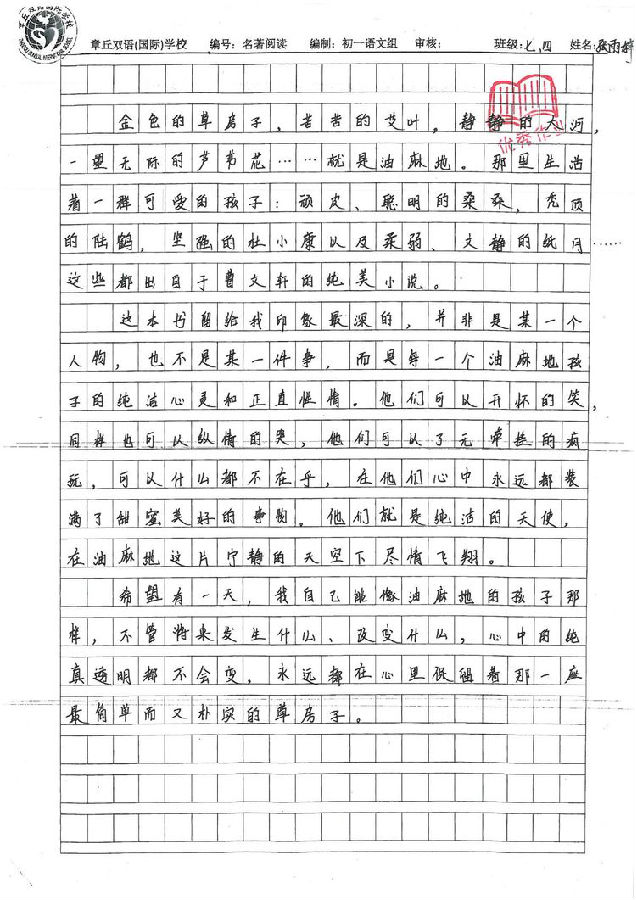 章丘双语(国际)学校 编号:名著阅读 编制:初一语文组 审核: 班级:七、四 姓名:
优秀作
金色的草房子,苦苦的艾叶。静静的大河,
一望无际的芦苇花……就是油麻地。那里生活
着一群可爱的孩子:顽皮、聪明的桑桑,秃顶
的陆鹤,坚强的杜小康以及柔弱、文静的纸月……
这些都出自于曹文轩的纯美小说。
这本书留给我印象最深的,并非是某一个
人物,也不是某一件事,而是每一个油麻地孩
子的纯洁心灵和正直性情。他们可以开怀的笑,
同样也可以纵情的哭,他们可以了无牵挂的疯
玩,可以什么都不在乎,在他们心中永远都装
满了甜蜜美好的事物。他们就是纯洁的天使,
在油麻地这片宁静的天空下尽情飞翔。
希望有一天,我自己能像油麻地的孩子那
样,不管将来发生什么、改变什么,心中的纯
真透明都不会变,永远都在心里保留着那一座
最简单而又朴实的草房子。